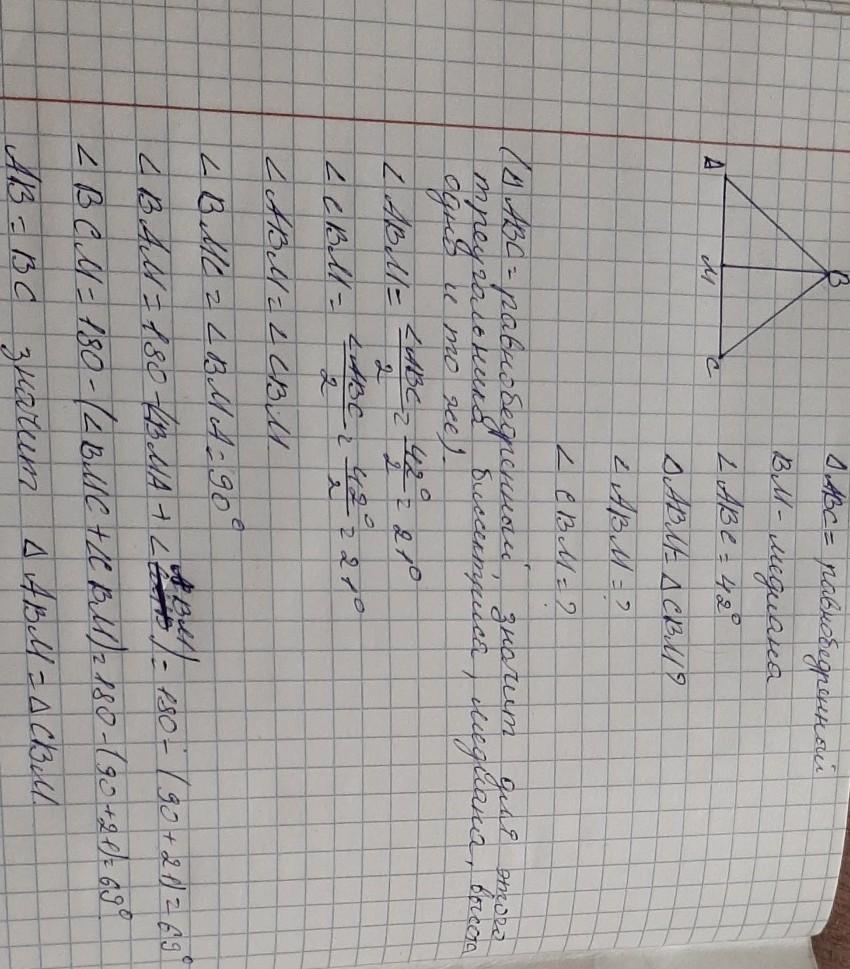 B
A
M
C
Δ ABC = равнобедренный
BM - медиана
∠ ABC = 42°
Δ ABM = Δ CBM?
∠ ABM = ?
∠ CBM = ?
(Δ ABC = равнобедренный, значит для этого
треугольника биссектриса, медиана, высота
одно и то же).
∠ ABM = ∠ABC/2 = 42°/2 = 21°
∠ CBM = ∠ABC/2 = 42°/2 = 21°
∠ ABM = ∠ CBM
∠ BMC = ∠ BMA = 90°
∠ BAM = 180 - (∠BMA + ∠ ABM) = 180 - (90 + 21) = 69°
∠ BCM = 180 - (∠ BMC + ∠CBM) = 180 - (90 + 21) = 69°
AB = BC значит Δ ABM = Δ CBM.